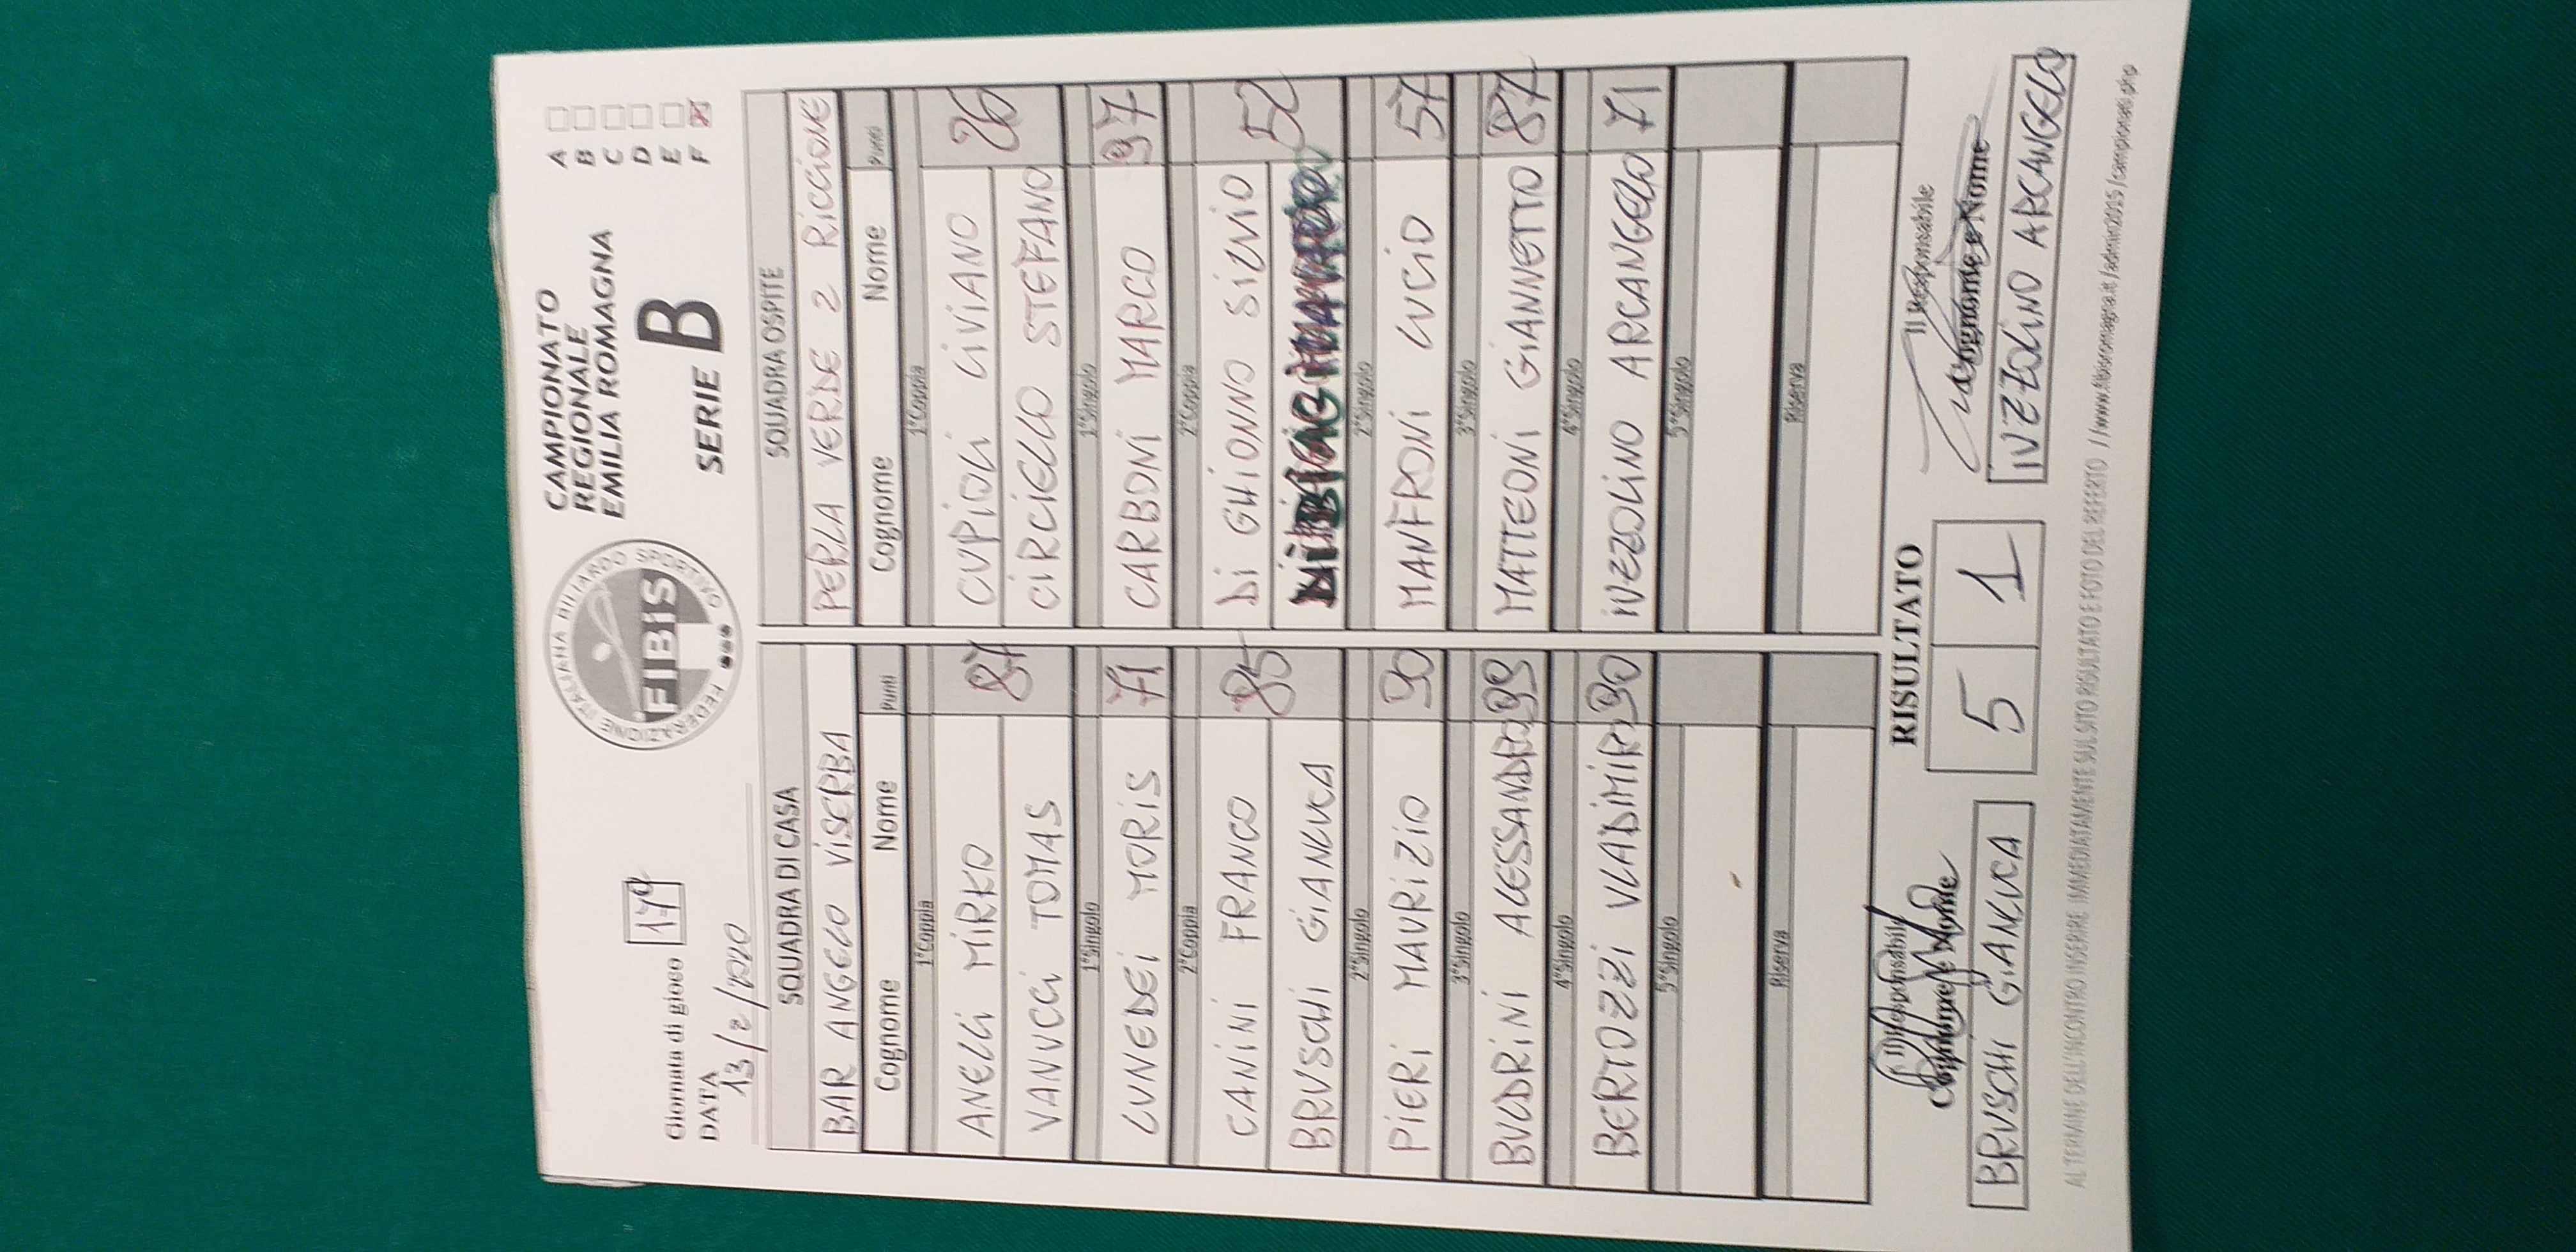 Giornata di gioco 17ª
DATA
13/2/2020
FEDERAZIONE ITALIANA BILIARDO SPORTIVO
FIBIS
CAMPIONATO
REGIONALE
EMILIA ROMAGNA
SERIE B
A
B
C
D
E
F X
SQUADRA DI CASA
BAR ANGELO VISERBA
Cognome Nome Punti
1°Coppia
ANELLI MIRKO
VANUCCI TOMAS
87
1°Singolo
LUNEDEI MORIS 71
2°Coppia
CANINI FRANCO
BRUSCHI GIANLUCA
85
2°Singolo
PIERI MAURIZIO 90
3°Singolo
BULDRINI ALESSANDRO 99
4°Singolo
BERTOZZI VLADIMIR 90
5°Singolo
Riserva
SQUADRA OSPITE
PERLA VERDE 2 RICCIONE
Cognome Nome Punti
1°Coppia
CUPIOLI LIVIANO
CIRCIELLO STEFANO
26
1°Singolo
CARBONI MARCO 97
2°Coppia
DI GHIONNO SILVIO
52
2°Singolo
MANFRONI LUCIO 57
3°Singolo
MATTEONI GIANNETTO 87
4°Singolo
IUZZOLINO ARCANGELO 71
5°Singolo
Riserva
Il Responsabile
Cognome e Nome
BRUSCHI GIANLUCA
RISULTATO
5 1
Il Responsabile
Cognome e Nome
IUZZOLINO ARCANGELO
AL TERMINE DELL'INCONTRO INSERIRE IMMEDIATAMENTE SUL SITO RISULTATO E FOTO DEL REFERTO //www.fibisromagna.it/admin2015/campionati.php